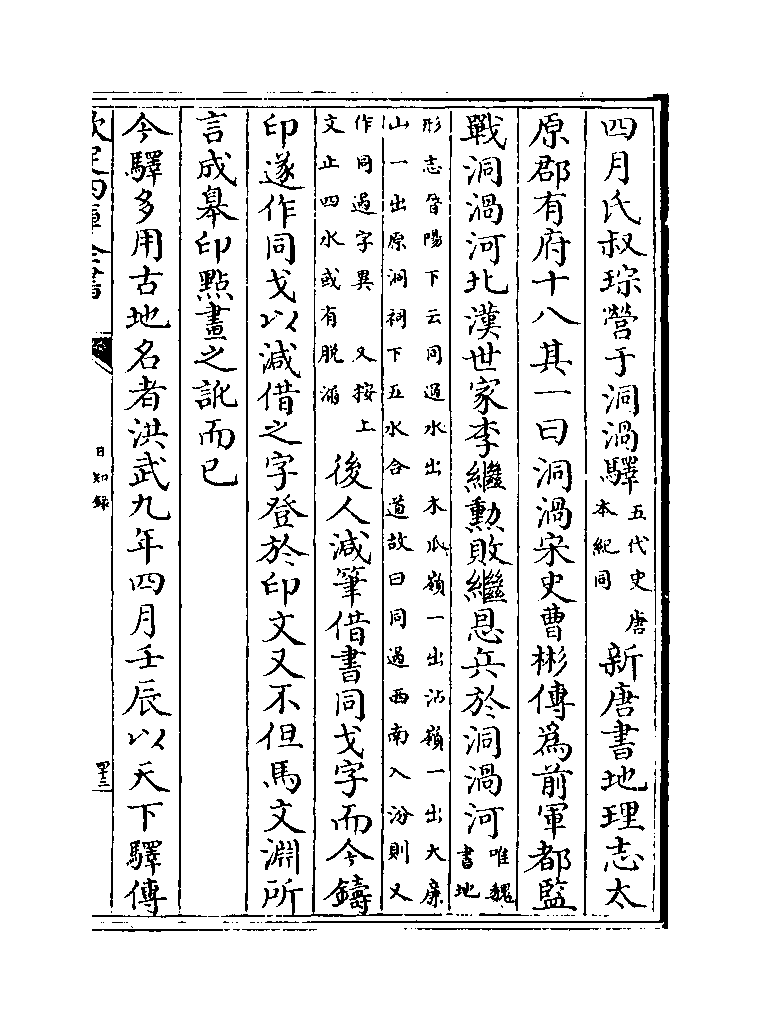 四月氏叔琮營于洞渦驛五代史唐本紀同新唐書地理志太
原郡有府十八其一曰洞渦宋史曹彬傳為前軍都監
戰洞渦河北漢世家李繼勲敗繼恩兵於洞渦河唯魏書地
形志晉陽下云同過水出木瓜嶺一出沾嶺一出大廉
山一出原渦祠下五水合道故曰同過西南入汾則又
作同過字異 又按上文止四水或有脱漏後人減筆借書同戈字而今鑄
印遂作同戈以減借之字登於印文又不但馬文淵所
言成臯印點畫之訛而已
今驛多用古地名者洪武九年四月壬辰以天下驛傳
欽定四庫全書
日知録
四十三